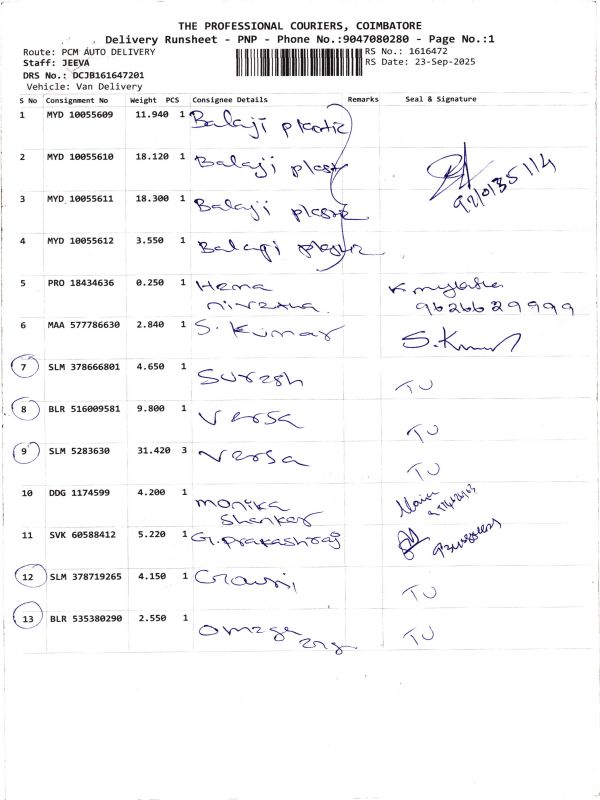 THE PROFESSIONAL COURIERS, COIMBATORE
Delivery Runsheet - PNP - Phone No.:9047080280 - Page No.:1
Route: PCM AUTO DELIVERY
RS No.: 1616472
Staff: JEEVA
RS Date: 23-Sep-2025
DRS No.: DCJB161647201
Vehicle: Van Delivery
S No Consignment No Weight PCS Consignee Details Remarks Seal & Signature
1 MYD 10055609 11.940 1 Balaji plastic
2 MYD 10055610 18.120 1 Balaji
3 MYD 10055611 18.300 1 Balaji
4 MYD 10055612 3.550 1 Balaji
5 PRO 18434636 0.250 1 Hema
9626629999
6 MAA 577786630 2.840 1 S. Kumar
7 SLM 378666801 4.650 1 Suresh TU
8 BLR 516009581 9.800 1 Versa TU
9 SLM 5283630 31.420 3 Versa TU
10 DDG 1174599 4.200 1 monika
Shanker
11 SVK 60588412 5.220 1 G. Prakashraj
12 SLM 378719265 4.150 1 TU
13 BLR 535380290 2.550 1 Omega TU